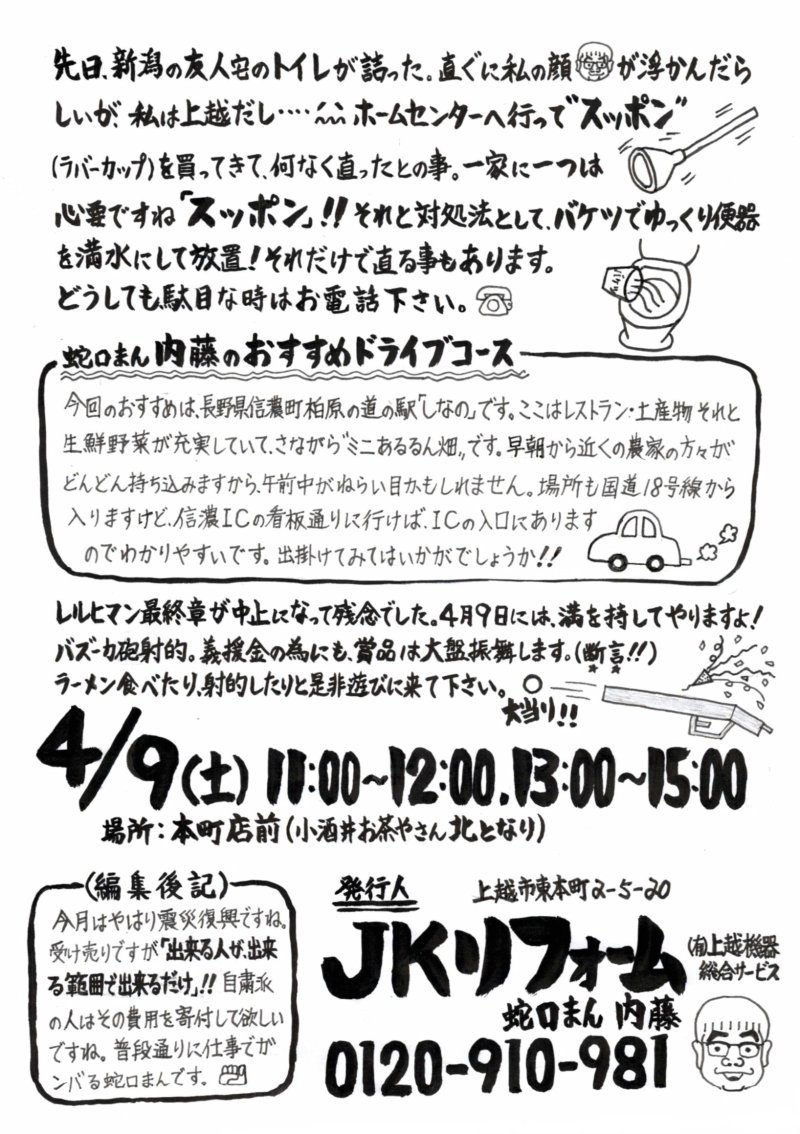 先日、新潟の友人宅のトイレが詰った。直ぐに私の顔が浮かんだら
しいが、私は上越だし‥‥ ホームセンターへ行って"スッポン"
(ラバーカップ)を買ってきて、何なく直ったとの事。一家に一つは
必要ですね「スッポン」!! それと対処法として、バケツでゆっくり便器
を満水にして放置!それだけで直る事もあります。
どうしても駄目な時はお電話下さい。
蛇口まん 内藤のおすすめドライブコース
今回のおすすめは、長野県信濃町柏原の道の駅「しなの」です。ここはレストラン・土産物 それと
生鮮野菜が充実していて、さながら"ミニあるるん畑〟です。早朝から近くの農家の方々が
どんどん持ち込みますから、午前中がねらい目かもしれません。場所も国道18号線から
入りますけど、信濃ICの看板通りに行けば、ICの入口にあります
のでわかりやすいです。出掛けてみてはいかがでしょうか!!
レルヒマン最終章が中止になって残念でした。4月9日には、満を持してやりますよ!
バズーカ砲射的。義援金の為にも、賞品は大盤振舞します。(断言!!)
ラーメン食べたり、射的したりと是非遊びに来て下さい。
大当り!!
4/9(土) 11:00~12:00.13:00~15:00
場所:本町店前(小酒井お茶やさん北となり)
(編集後記)
今月はやはり震災復興ですね。
受け売りですが「出来る人が、出来
る範囲で出来るだけ」!! 自粛派
の人はその費用を寄付して欲しい
ですね。普段通りに仕事でガ
ンバる蛇口まんです。
発行人 上越市東本町2-5-20
JKリフォーム (有)上越機器
総合サービス
蛇口まん 内藤
0120-910-981